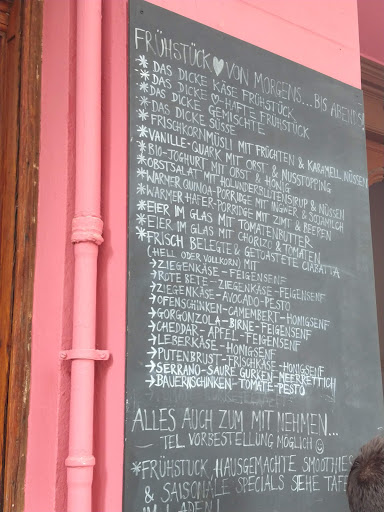 FRÜHSTÜCK ♡ VON MORGENS... BIS ABENDS!
* DAS DICKE KÄSE FRÜHSTÜCK
* DAS DICKE ♡-HAFTE FRÜHSTÜCK
* DAS DICKE GEMISCHTE
* DAS DICKE SÜSSE
* FRISCHKORNMÜSLI MIT FRÜCHTEN & KARAMELL NÜSSEN
* VANILLE-QUARK MIT OBST & NUSSTOPPING
* BIO-JOGHURT MIT OBST & HONIG
* OBSTSALAT MIT HOLUNDERBLÜTENSIRUP & NÜSSEN
* WARMER QUINOA-PORRIDGE MIT INGWER & SOJAMILCH
* WARMER HAFER-PORRIDGE MIT ZIMT & BEEREN
* EIER IM GLAS MIT TOMATENBUTTER
* EIER IM GLAS MIT CHORIZO & TOMATEN
* FRISCH BELEGTE & GETOASTETE CIABATTA
(HELL ODER VOLLKORN) MIT
→ ZIEGENKÄSE - FEIGENSENF
→ ROTE BETE - ZIEGENKÄSE - FEIGENSENF
→ ZIEGENKÄSE - AVOCADO - PESTO
→ OFENSCHINKEN - CAMEMBERT - HONIGSENF
→ GORGONZOLA - BIRNE - FEIGENSENF
→ CHEDDAR - APFEL - FEIGENSENF
→ LEBERKÄSE - HONIGSENF
→ PUTENBRUST - FRISCHKÄSE - HONIGSENF
→ SERRANO - SAURE GURKEN - MEERRETTICH
→ BAUERNSCHINKEN - TOMATE - PESTO
ALLES AUCH ZUM MIT NEHMEN...
TEL VORBESTELLUNG MÖGLICH ☺
* FRÜHSTÜCK, HAUSGEMACHTE SMOOTHIES
& SAISONALE SPECIALS SIEHE TAFEL
IM LADEN!